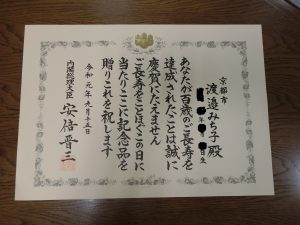 京都市
渡邉みち子殿
年
月
日生
あなたが百歳のご長寿を
達成されたことは誠に
慶賀にたえません
ご長寿をことほぐこの日に
当たりここに記念品を
贈りこれを祝します
令和元年九月十五日
内閣総理大臣 安倍晋三